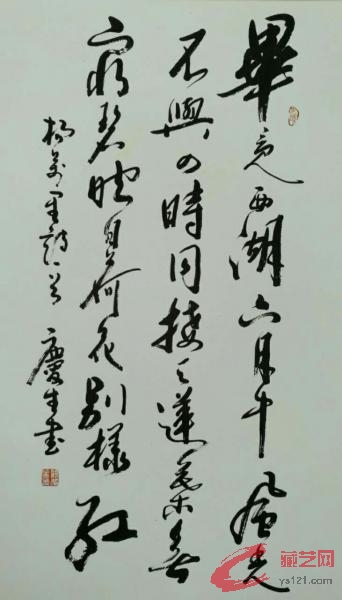 畢竟西湖六月中風光
不與四時同接天蓮葉無
窮碧映日荷花別樣紅
楊萬里詩一首 慶生書
藏艺网
ys121.com